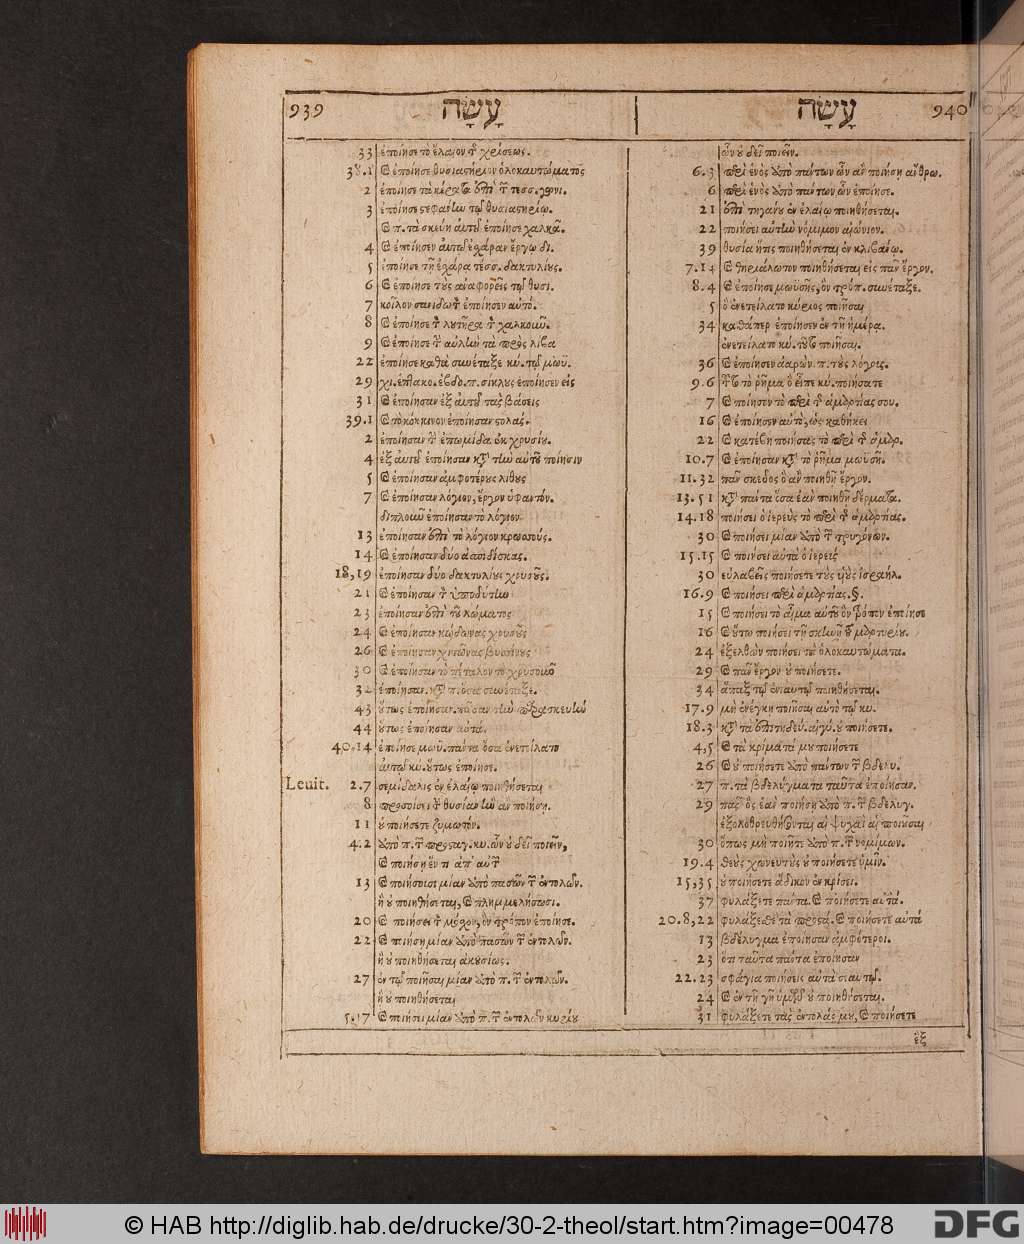 939 עָשָׂה
33 ἐποίησε τὸ ἔλαιον τ͂ χρίσεως.
38.1 καὶ ἐποίησε θυσιαστήριον ὁλοκαυτώματος
2 ἐποίησε τὰ κέρατα ἐπὶ τ͂ τεσσ. γωνι.
3 ἐποίησε στεφάνίω τῷ θυσιαστηρίω.
καὶ π. τὰ σκεύη αὐτοῦ ἐποίησε χαλκᾶ.
4 καὶ ἐποίησεν αὐτῷ ἐσχάραν ἔργω δι.
5 ἐποίησε τῇ ἐσχάρα τέσσ. δακτυλίους.
6 καὶ ἐποίησε τοὺς ἀναφορεῖς τῷ θυσι.
7 κοῖλον σανιδωτ ἐποίησεν αὐτό.
8 καὶ ἐποίησε τ λουτῆρα τ χαλκοῦν.
9 καὶ ἐποίησε τ αὐλὴν τὰ πρὸς λίβα
22 ἐποίησε καθὰ συνέταξε κύ. τῷ μωϋ.
29 χι. ἑπτακο. ἑβδο. π. σίκλους ἐποίησεν εἰς
31 καὶ ἐποίησαν ἐξ αὐτοῦ τὰς βάσεις
39.1 καὶ τὸ κόκκινον ἐποίησαν στολάς.
2 ἐποίησαν τ ἐπωμίδα ἐκ χρυσίου.
4 ἐξ αὐτοῦ ἐποίησαν κατὰ τὴν αὐτοῦ ποίησιν
5 καὶ ἐποίησαν ἀμφοτέρους λίθους
7 καὶ ἐποίησαν λόγιον, ἔργον ὑφαντόν.
διπλοῦν ἐποίησαν τὸ λόγιον
13 ἐποίησαν ἐπὶ τὸ λόγιον κρωσσούς.
14 καὶ ἐποίησαν δύο ἀσπιδίσκας.
18,19 ἐποίησαν δύο δακτυλίους χρυσοῦς.
21 καὶ ἐποίησαν τ ὑποδύτην
23 ἐποίησαν ἐπὶ τοῦ λώματος
24 καὶ ἐποίησαν κώδωνας χρυσοῦς
26 καὶ ἐποίησαν χιτῶνας βυσσίνους
30 καὶ ἐποίησαν τὸ πέταλον τὸ χρυσοῦν
32 ἐποίησαν. κατὰ π. ὅσα συνέταξε.
43 οὕτως ἐποίησαν. πᾶσαν τὴν παρασκευὴν
44 οὕτως ἐποίησαν αὐτά.
40.14 ἐποίησε μωϋ. πάντα ὅσα ἐνετείλατο
αὐτῷ κυ. οὕτως ἐποίησε.
Leuit. 2.7 σεμίδαλις ἐν ἐλαίῳ ποιηθήσεται
8 προσοίσει τ θυσίαν ἣν ἂν ποιήσῃ.
11 οὐ ποιήσετε ζυμωτόν.
4.2 ἀπὸ π. τ προσταγ. κυ. ὧν οὐ δεῖ ποιεῖν,
καὶ ποιήσῃ ἕν τι ἀπ' αὐτ
13 καὶ ποιήσωσι μίαν ἀπὸ πασῶν τ ἐντολῶν.
ἣ οὐ ποιηθήσεται, καὶ πλημμελήσωσι.
20 καὶ ποιήσει τ μόσχον, ὃν τρόπον ἐποίησε.
22 καὶ ποιήσῃ μίαν ἀπὸ πασῶν τ ἐντολῶν.
ἣ οὐ ποιηθήσεται ἀκουσίως.
27 ἐν τῷ ποιῆσαι μίαν ἀπὸ π. τ ἐντολῶν.
ἣ οὐ ποιηθήσεται
5.17 καὶ ποιήσει μίαν ἀπὸ π. τ ἐντολῶν κυρίου
עָשָׂה 940
ὧν οὐ δεῖ ποιεῖν.
6.3 περὶ ἑνὸς ἀπὸ πάντων ὧν ἂν ποιήσῃ ἄνθρω.
6 περὶ ἑνὸς ἀπὸ πάντων ὧν ἐποίησε.
21 ἐπὶ τηγάνου ἐν ἐλαίῳ ποιηθήσεται.
22 ποιήσει αὐτὴν νόμιμον αἰώνιον.
39 θυσία ἥτις ποιηθήσεται ἐν κλιβάνω.
7.14 καὶ θηριάλωτον ποιηθήσεται εἰς πᾶν ἔργον.
8.4 καὶ ἐποίησε μωϋσῆς, ὃν τρόπ. συνέταξε.
5 ὃ ἐνετείλατο κύριος ποιῆσαι
34 καθάπερ ἐποίησεν ἐν τῇ ἡμέρα.
ἐνετείλατο κυ. τοῦτο ποιῆσαι.
36 καὶ ἐποίησεν ἀαρών. π. τοὺς λόγους.
9.6 τοῦτο τὸ ῥῆμα ὃ εἶπε κύ. ποιήσατε
7 καὶ ποίησον τὸ περὶ τ ἁμαρτίας σου.
16 καὶ ἐποίησεν αὐτὸ, ὡς καθήκει
22 καὶ κατέβη ποιήσας τὸ περὶ τ ἁμαρ.
10.7 καὶ ἐποίησαν κατὰ τὸ ῥῆμα μωϋσῆ.
11.32 πᾶν σκεῦος ὃ ἂν ποιηθῇ ἔργον.
13.51 κατὰ πάντα ὅσα ἐὰν ποιηθῇ δέρματα.
14.18 ποιήσει ὁ ἱερεὺς τὸ περὶ τ ἁμαρτίας.
30 καὶ ποιήσει μίαν ἀπὸ τ τρυγόνων.
15.15 καὶ ποιήσει αὐτὰ ὁ ἱερεὺς
30 εὐλαβεῖς ποιήσετε τοὺς υἱοὺς ἰσραήλ.
16.9 καὶ ποιήσει περὶ ἁμαρτίας. §.
15 καὶ ποιήσει τὸ αἷμα αὐτοῦ ὃν τρόπον ἐποίησε
16 καὶ οὕτω ποιήσει τῇ σκηνῇ τοῦ μαρτυρίου.
24 ἐξελθὼν ποιήσει τὸ ὁλοκαυτώματα.
29 καὶ πᾶν ἔργον οὐ ποιήσετε.
34 ἅπαξ τῷ ἐνιαυτῷ ποιηθήσεται.
17.9 μὴ ἐνέγκῃ ποιῆσαι αὐτὸ τῷ κυ.
18.3 κατὰ τὰ ἐπιτηδεύ. αἰγύ. οὐ ποιήσετε.
4,5 καὶ τὰ κρίματά μου ποιήσετε
26 καὶ οὐ ποιήσετε ἀπὸ πάντων τ βδελυ.
27 π. τὰ βδελύγματα ταῦτα ἐποίησαν.
29 πᾶς ὃς ἐὰν ποιήσῃ ἀπὸ π. τ βδελυγ.
ἐξολοθρευθήσονται αἱ ψυχαὶ αἱ ποιοῦσαι
30 ὅπως μὴ ποιῆτε ἀπὸ π. τ νομίμων.
19.4 θεοὺς χωνευτοὺς οὐ ποιήσετε ὑμῖν.
15,35 οὐ ποιήσετε ἄδικον ἐν κρίσει.
37 φυλάξετε πάντα. καὶ ποιήσετε αὐτά.
20.8,22 φυλάξεσθε τὰ προστά. καὶ ποιήσετε αὐτά
13 βδέλυγμα ἐποίησαν ἀμφότεροι.
23 ὅτι ταῦτα πάντα ἐποίησαν
22.23 σφάγια ποιήσεις αὐτὰ σεαυτῷ.
24 καὶ ἐν τῇ γῇ ὑμῶν οὐ ποιηθήσεται.
31 φυλάξετε τὰς ἐντολάς μου, καὶ ποιήσετε
ἐξ
© HAB http://diglib.hab.de/drucke/30-2-theol/start.htm?image=00478
DFG